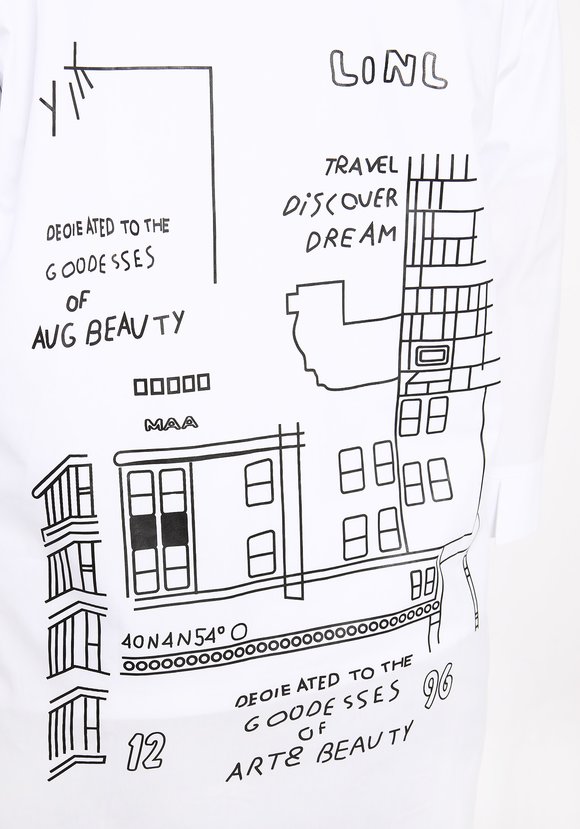 LONL
TRAVEL
DiSCOVER
DREAM
DEOIEATED TO THE
GOODESSES
OF
AUG BEAUTY
MAA
40N4N54° O
DEOIEATED TO THE
GOODESSES
OF
ART& BEAUTY
96
12